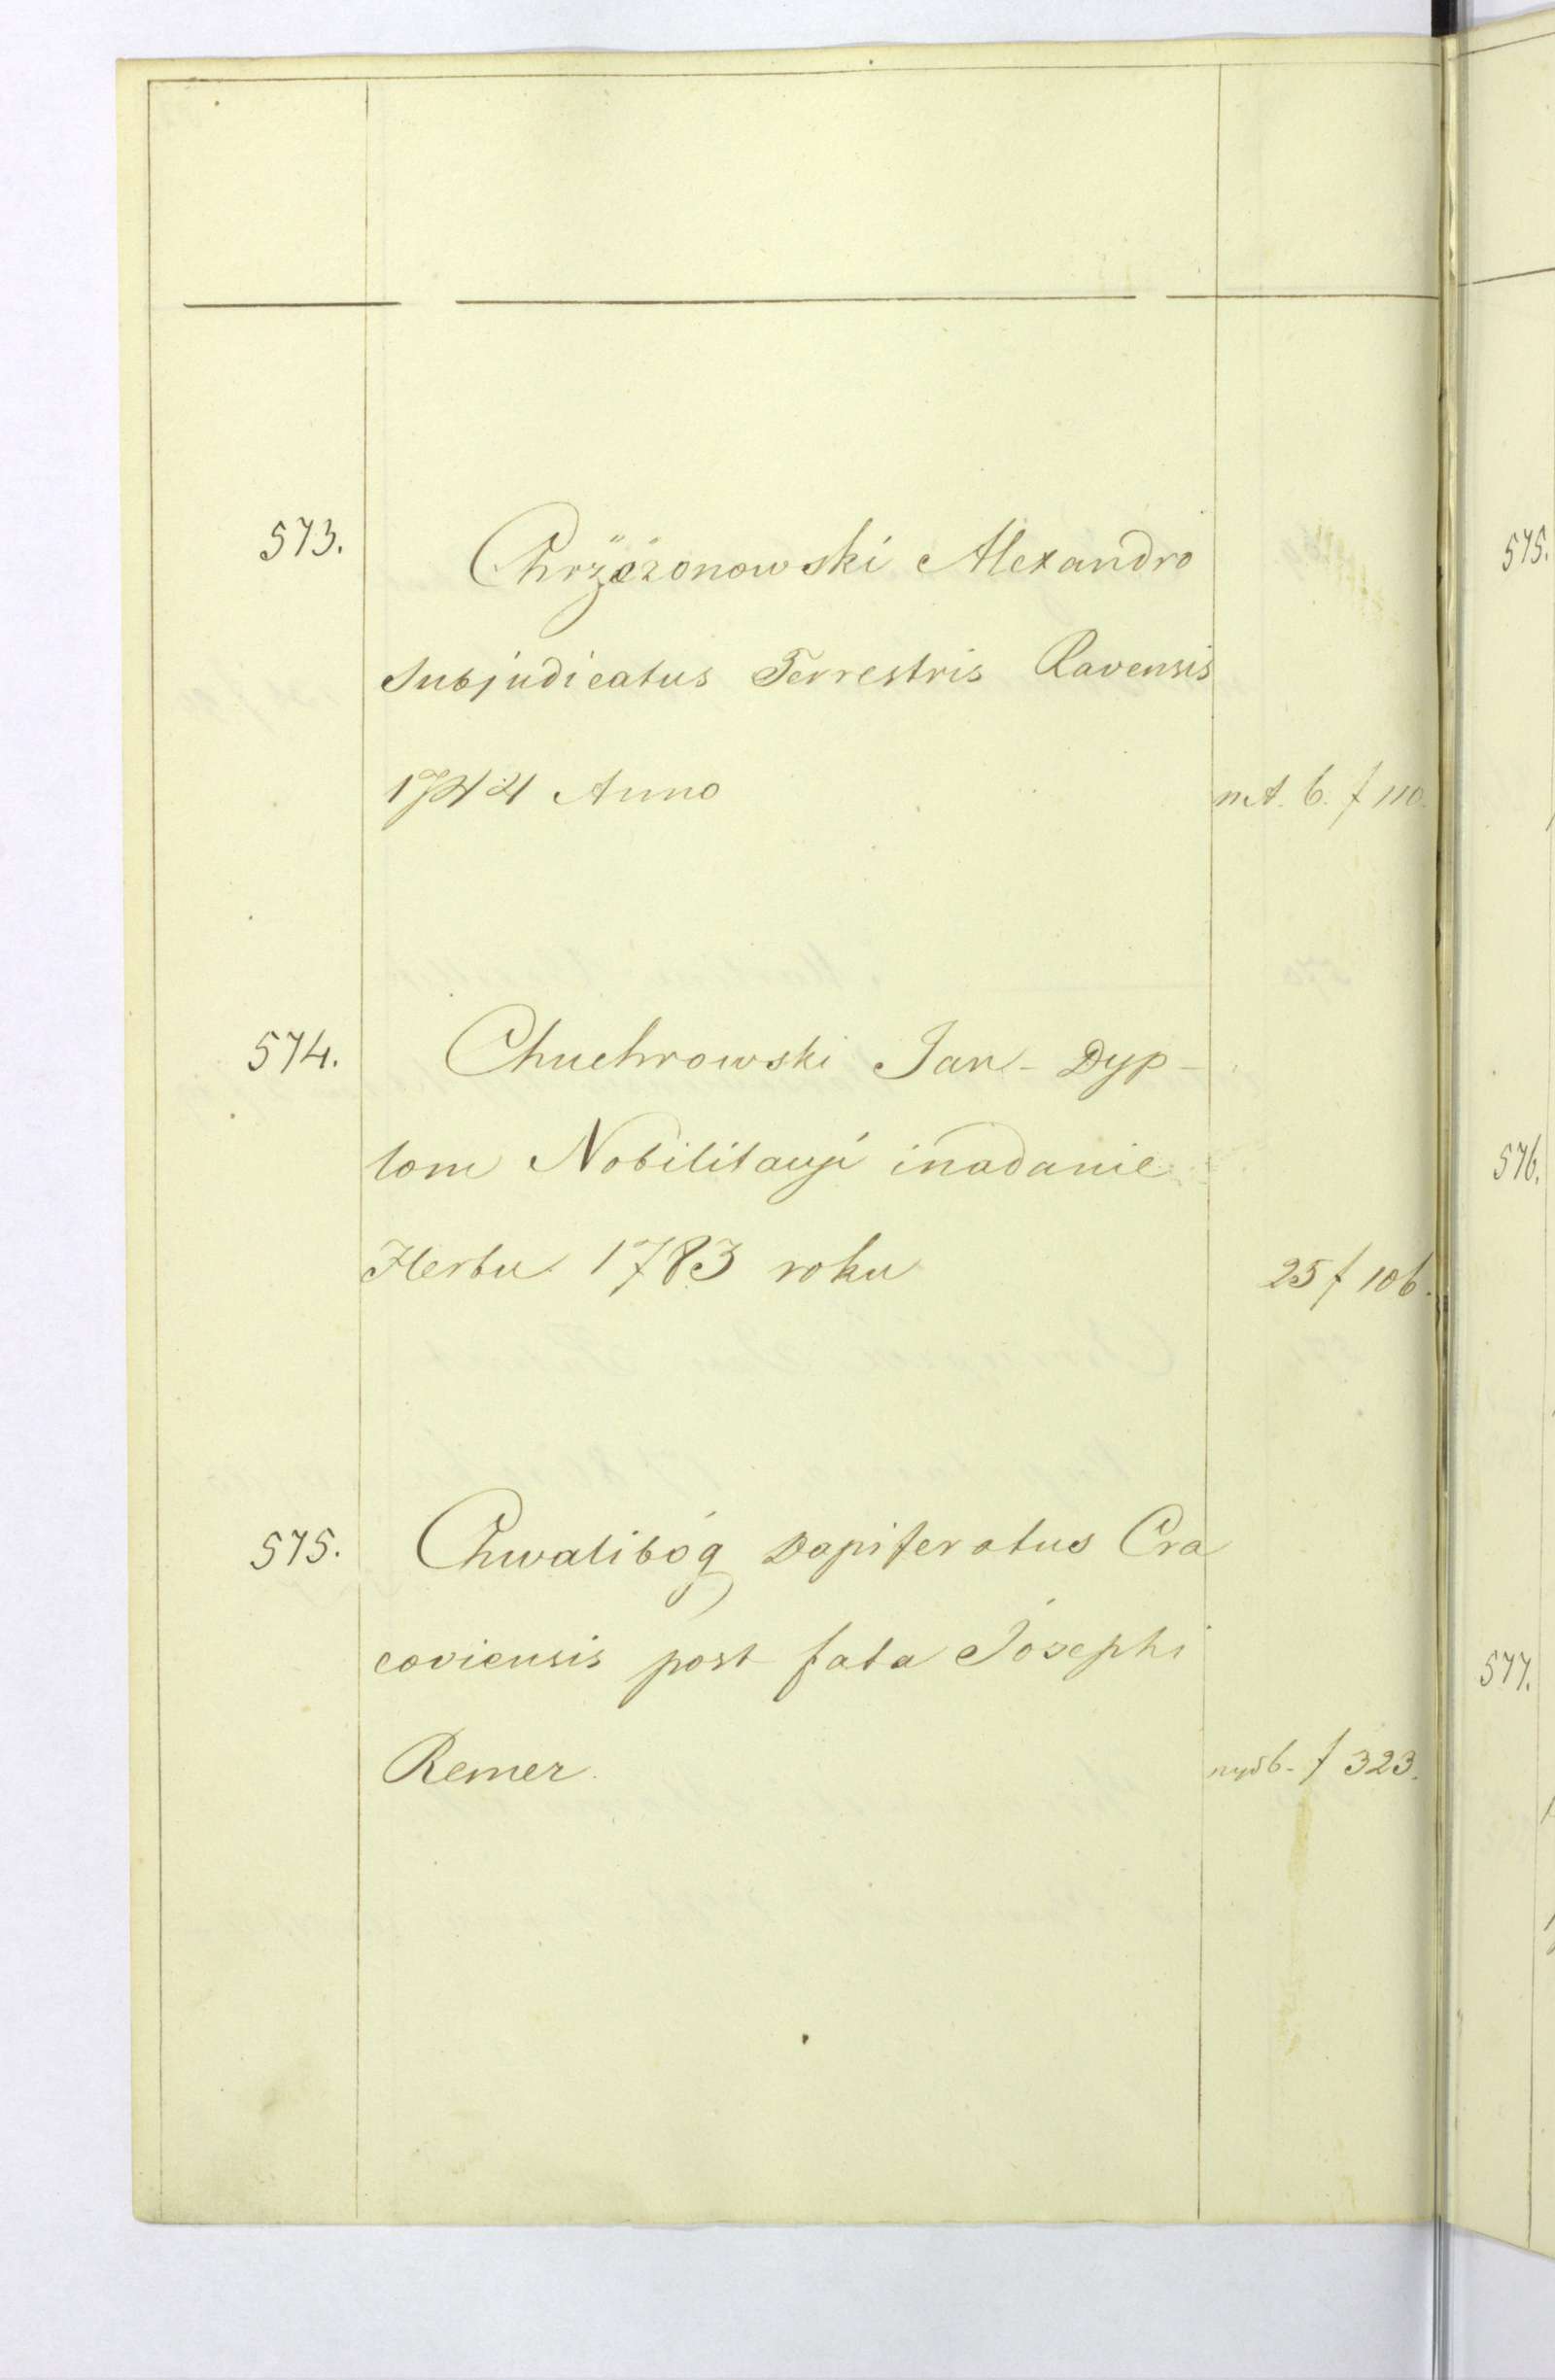 573. Chrzczonowski Alexandro
Subjudicatus Terrestris Ravensis
1744 Anno f 110.
574. Chuchrowski Jan - Dyp-
lom Nobilitacyi inadanie
Herbu 1783 roku 25 f 106.
575. Chwalibóg Dapiferatus Cra
coviensis post fata Józephi
Remer. f 323.
575.
576.
577.